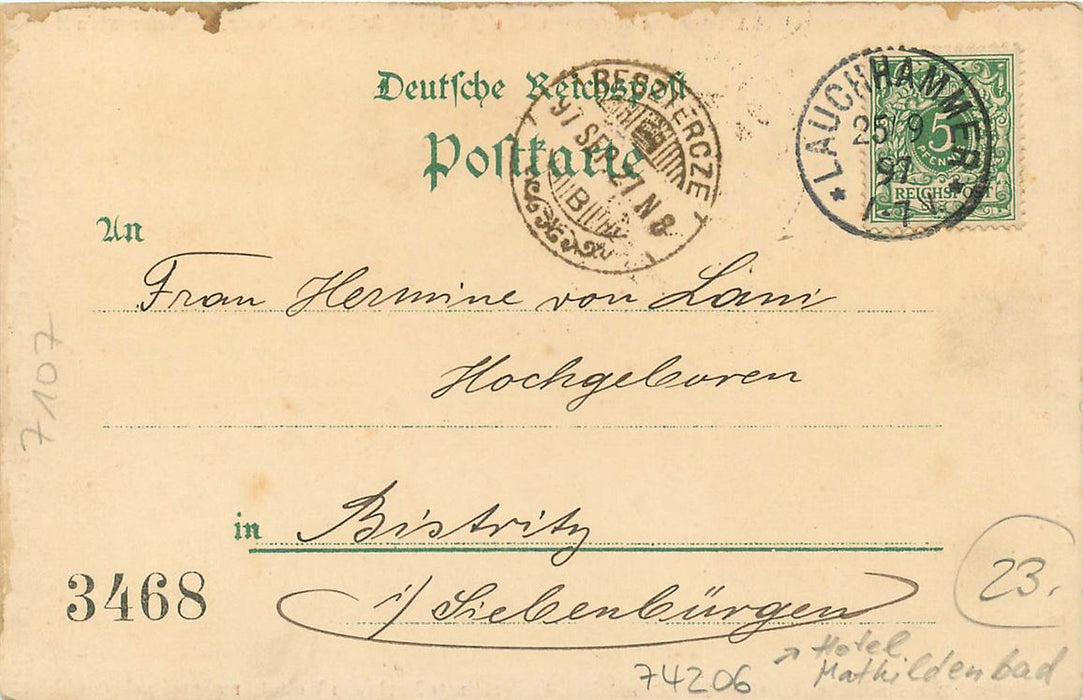 Deutsche Reichspost
Postkarte
BESZTERCZE
97 SEP 27 N 8
B
LAUCHHAMMER
25/9
97
7 N
5
PFENNIG
REICHSPOST
An
Frau Hermine von Lani
Hochgeboren
in Bistritz
i/ Siebenbürgen
7107
3468
23.
74206
Hotel
Mathildenbad